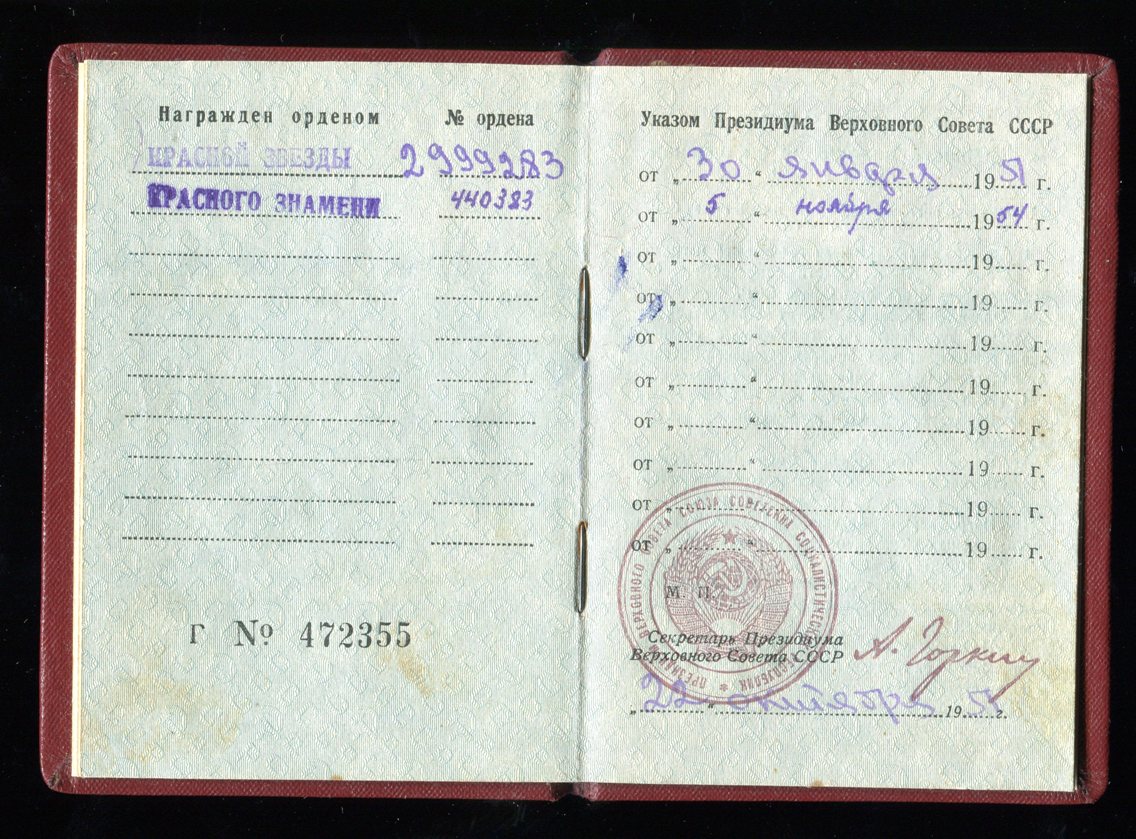 Награжден орденом № ордена
КРАСНОЙ ЗВЕЗДЫ 2999283
КРАСНОГО ЗНАМЕНИ 440383
Г № 472355
Указом Президиума Верховного Совета СССР
от „ 30 “ января 1951 г.
от „ 5 “ ноября 1954 г.
от „ “ 19 г.
от „ “ 19 г.
от „ “ 19 г.
от „ “ 19 г.
от „ “ 19 г.
от „ “ 19 г.
от „ “ 19 г.
от „ “ 19 г.
М. П.
ПРЕЗИДИУМ ВЕРХОВНОГО СОВЕТА СОЮЗА СОВЕТСКИХ СОЦИАЛИСТИЧЕСКИХ РЕСПУБЛИК
Секретарь Президиума
Верховного Совета СССР А. Горкин
„ 22 “ октября 195 г.